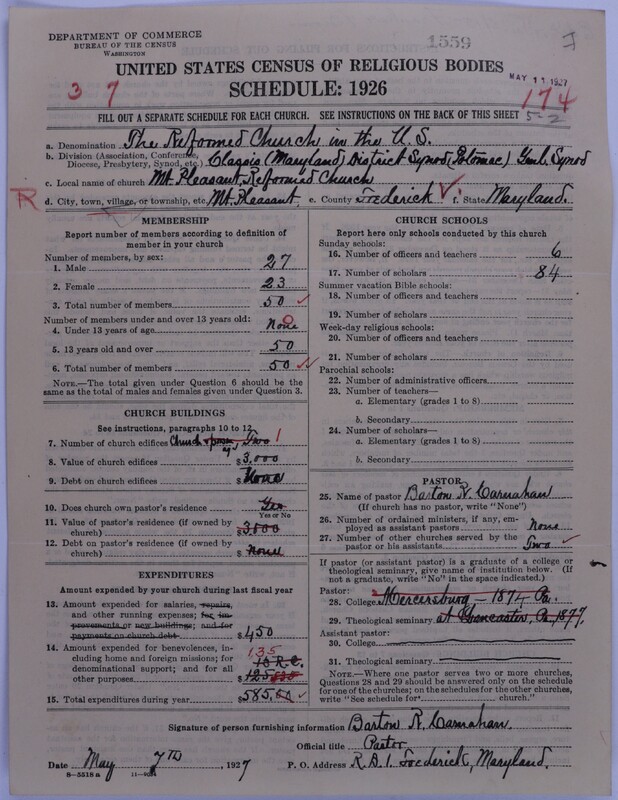 DEPARTMENT OF COMMERCE
BUREAU OF THE CENSUS
WASHINGTON
1559
UNITED STATES CENSUS OF RELIGIOUS BODIES
MAY 11 1927
SCHEDULE: 1926
3 7
174
FILL OUT A SEPARATE SCHEDULE FOR EACH CHURCH. SEE INSTRUCTIONS ON THE BACK OF THIS SHEET
5-2
a. Denomination The Reformed Church in the U. S.
b. Division (Association, Conference, Diocese, Presbytery, Synod, etc.) Classis (Maryland) District Synod (Potomac) Genl. Synod
c. Local name of church Mt. Pleasant, Reformed Church
R d. City, town, village, or township, etc. Mt. Pleasant. e. County Frederick f. State Maryland.
MEMBERSHIP
Report number of members according to definition of
member in your church
Number of members, by sex:
1. Male 27
2. Female 23
3. Total number of members 50
Number of members under and over 13 years old:
4. Under 13 years of age None 0
5. 13 years old and over 50
6. Total number of members 50
NOTE.—The total given under Question 6 should be the
same as the total of males and females given under Question 3.
CHURCH BUILDINGS
See instructions, paragraphs 10 to 12
7. Number of church edifices Church Two 1
8. Value of church edifices $3,000
9. Debt on church edifices $None
10. Does church own pastor's residence Yes
Yes or No
11. Value of pastor's residence (if owned by
church) $3,500
12. Debt on pastor's residence (if owned by
church) $None
EXPENDITURES
Amount expended by your church during last fiscal year
13. Amount expended for salaries, repairs,
and other running expenses; for im-
provements or new buildings; and for
payments on church debt $450
14. Amount expended for benevolences, in-
cluding home and foreign missions; for
denominational support; and for all
other purposes 135
10 R.C.
$125
15. Total expenditures during year $585.00
CHURCH SCHOOLS
Report here only schools conducted by this church
Sunday schools:
16. Number of officers and teachers 6
17. Number of scholars 84
Summer vacation Bible schools:
18. Number of officers and teachers
19. Number of scholars
Week-day religious schools:
20. Number of officers and teachers
21. Number of scholars
Parochial schools:
22. Number of administrative officers
23. Number of teachers—
a. Elementary (grades 1 to 8)
b. Secondary
24. Number of scholars—
a. Elementary (grades 1 to 8)
b. Secondary
PASTOR
25. Name of pastor Barton R. Carnahan
(If church has no pastor, write "None")
26. Number of ordained ministers, if any, em-
ployed as assistant pastors None
27. Number of other churches served by the
pastor or his assistants Two
If pastor (or assistant pastor) is a graduate of a college or
theological seminary, give name of institution below. (If
not a graduate, write "No" in the space indicated.)
Pastor:
28. College Mercersburg — 1874 Pa.
29. Theological seminary at Lancaster, Pa, 1877.
Assistant pastor:
30. College
31. Theological seminary
NOTE.—Where one pastor serves two or more churches,
Questions 28 and 29 should be answered only on the schedule
for one of the churches; on the schedules for the other churches,
write "See schedule for church."
Signature of person furnishing information Barton R. Carnahan
Official title Pastor
Date May 7TH, 1927 P. O. Address R. D. 1. Frederick, Maryland.
8-5518 a